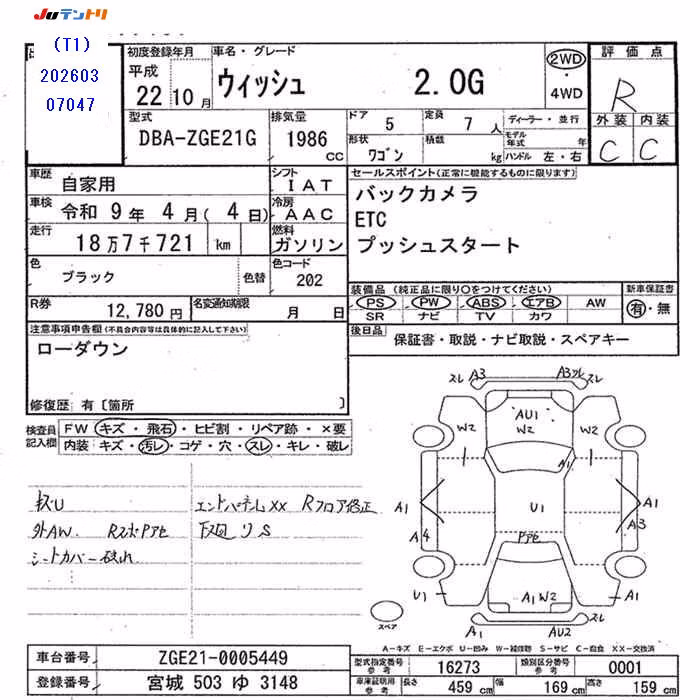 JUテントリ
(T1)
202603
07047
初度登録年月
平成
22 10月
車名・グレード
ウィッシュ 2.0G
2WD
・
4WD
評価点
R
外装 内装
C C
型式
DBA-ZGE21G
排気量
1986
CC
ドア 5
定員 7人
形状 ワゴン
積載 kg
ディーラー・並行
モデル年式 年
ハンドル 左・右
車歴 自家用
シフト IAT
車検 令和 9年 4月( 4日)
冷房 AAC
走行 18万7千721 km
燃料 ガソリン
色 ブラック 色替
色コード 202
R券 12,780円
名変通知期限 月 日
セールスポイント(正常に機能するものに限ります)
バックカメラ
ETC
プッシュスタート
装備品(純正品に限り○をつけてください)
新車保証書
PS PW ABS エアB AW
有・無
SR ナビ TV カワ
後日品 保証書・取説・ナビ取説・スペアキー
注意事項申告欄(不具合内容等は具体的に記入して下さい)
ローダウン
修復歴:有〔箇所 〕
検査員記入欄
FW キズ・飛石・ヒビ割・リペア跡・×要
内装:キズ・汚レ・コゲ・穴・スレ・キレ・破レ
外AW. RスポPアセ
シートカバー破れ
エンドパネルXX Rフロア修正
下回りS
スレ A3 A3スレ スレ
AU1
W2 W2 W2
A1
A1 U1 A1
A3
A4
Pアセ
U1 A1W2 A1
スペア
A1 AU2
A-キズ E-エクボ U-凹み W-補修跡 S-サビ C-腐食 XX-交換済
車台番号 ZGE21-0005449
登録番号 宮城 503 ゆ 3148
型式指定番号 参考 16273
類別区分番号 参考 0001
車庫証明用 参考 長さ 459 cm 幅 169 cm 高さ 159 cm